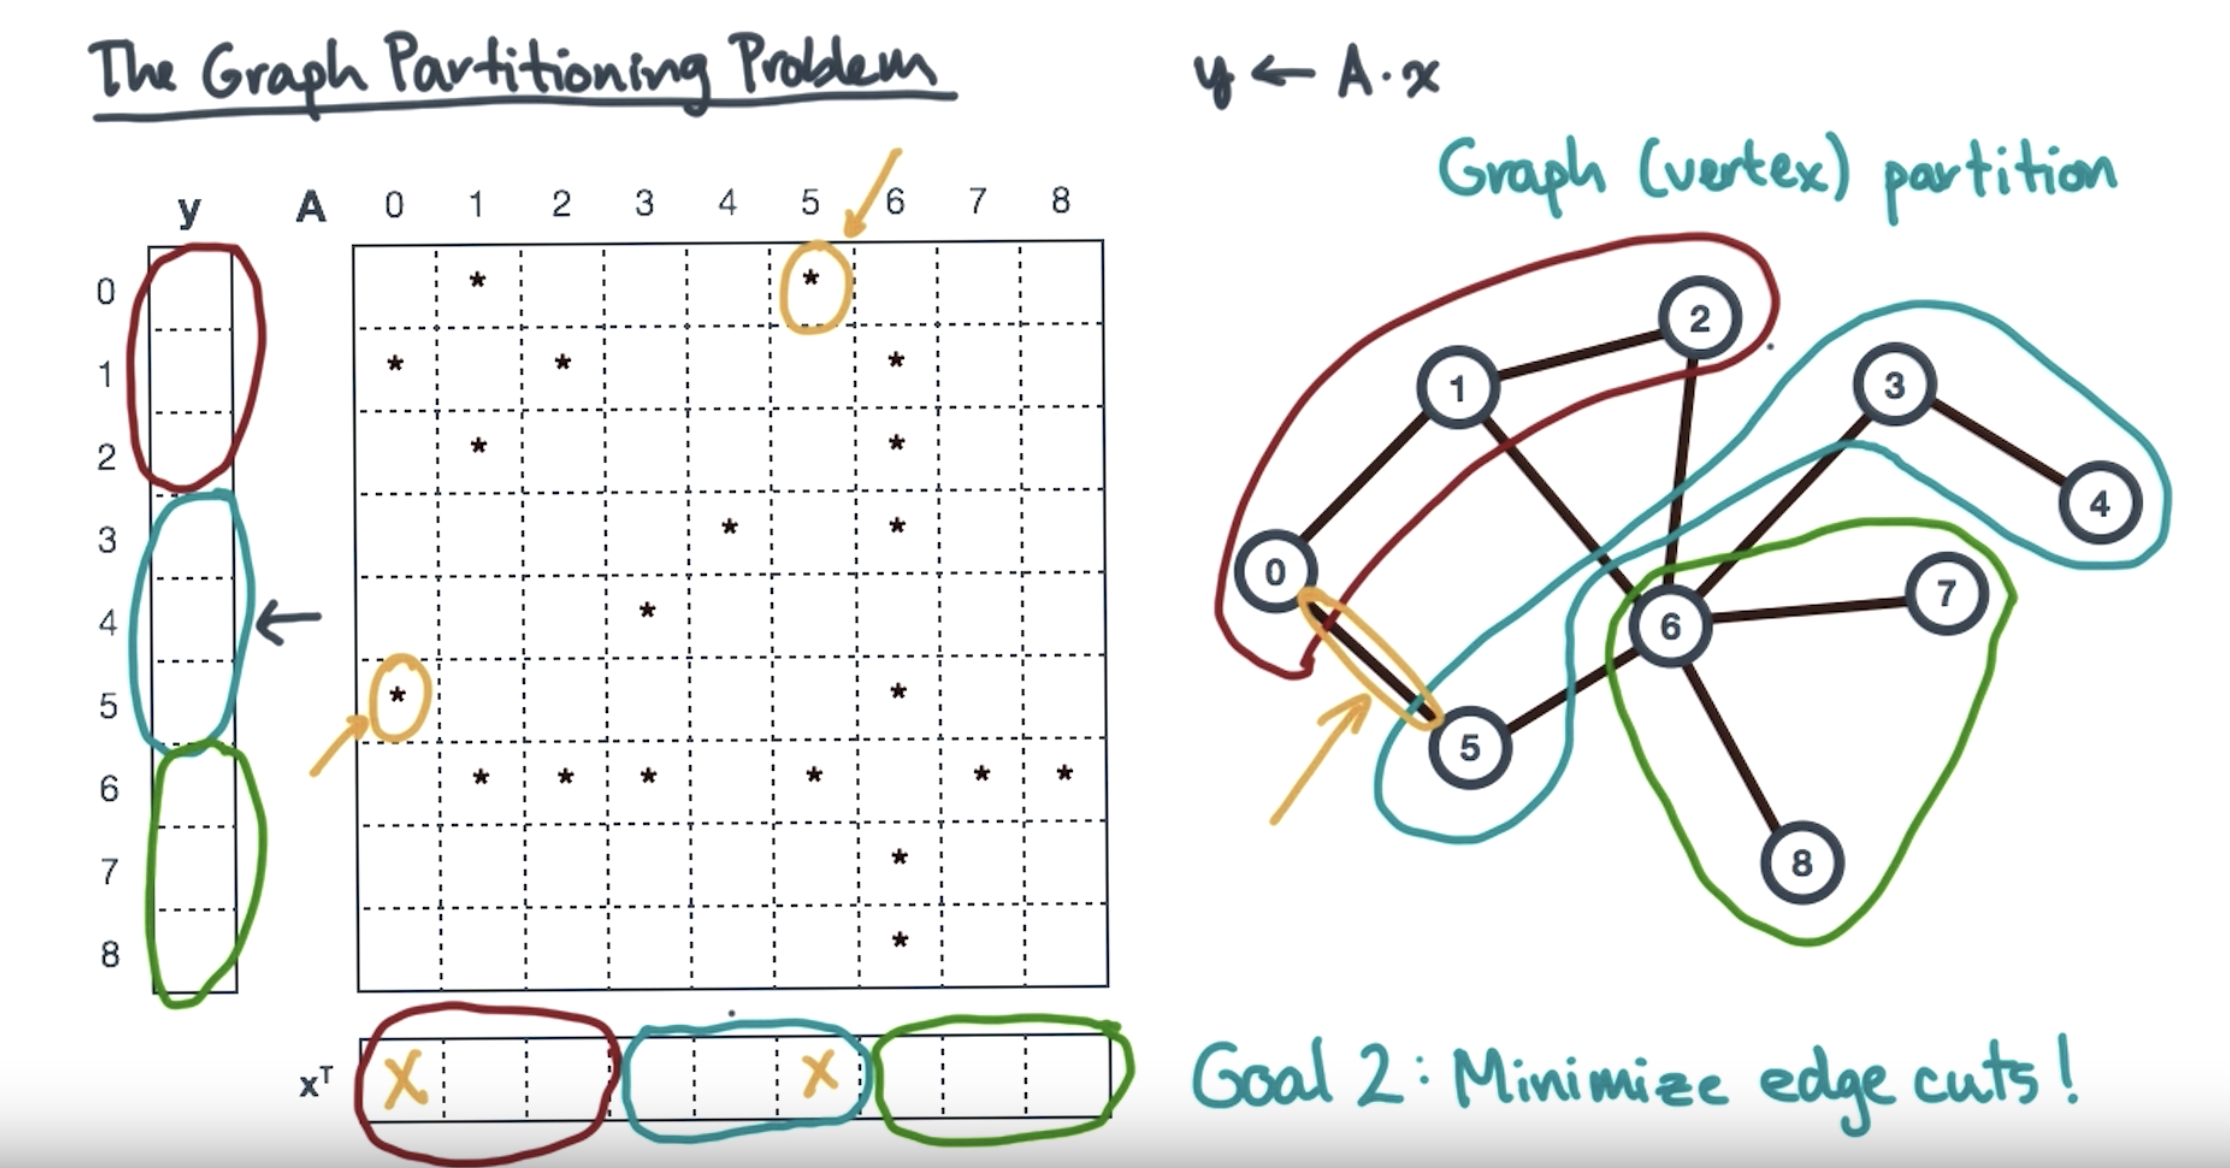 The Graph Partitioning Problem
y ← A·x
Graph (vertex) partition
y A 0 1 2 3 4 5 6 7 8
0 * *
1 * * *
2 * *
3 * *
4 *
5 * *
6 * * * * * *
7 *
8 *
xᵀ X X
2
1
3
4
0
7
6
5
8
Goal 2: Minimize edge cuts!